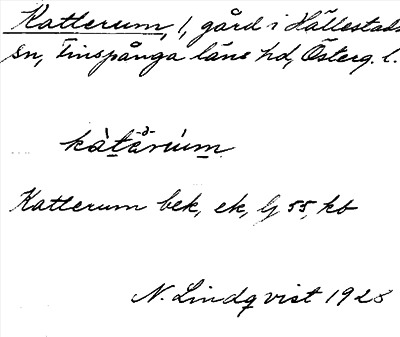 Katterum, 1, gård i Hällestads
sn, Finspånga läns hd, Österg. l.
kàtarùm
Katterum bek, ek, Gj 55, kb
N. Lindqvist 1928